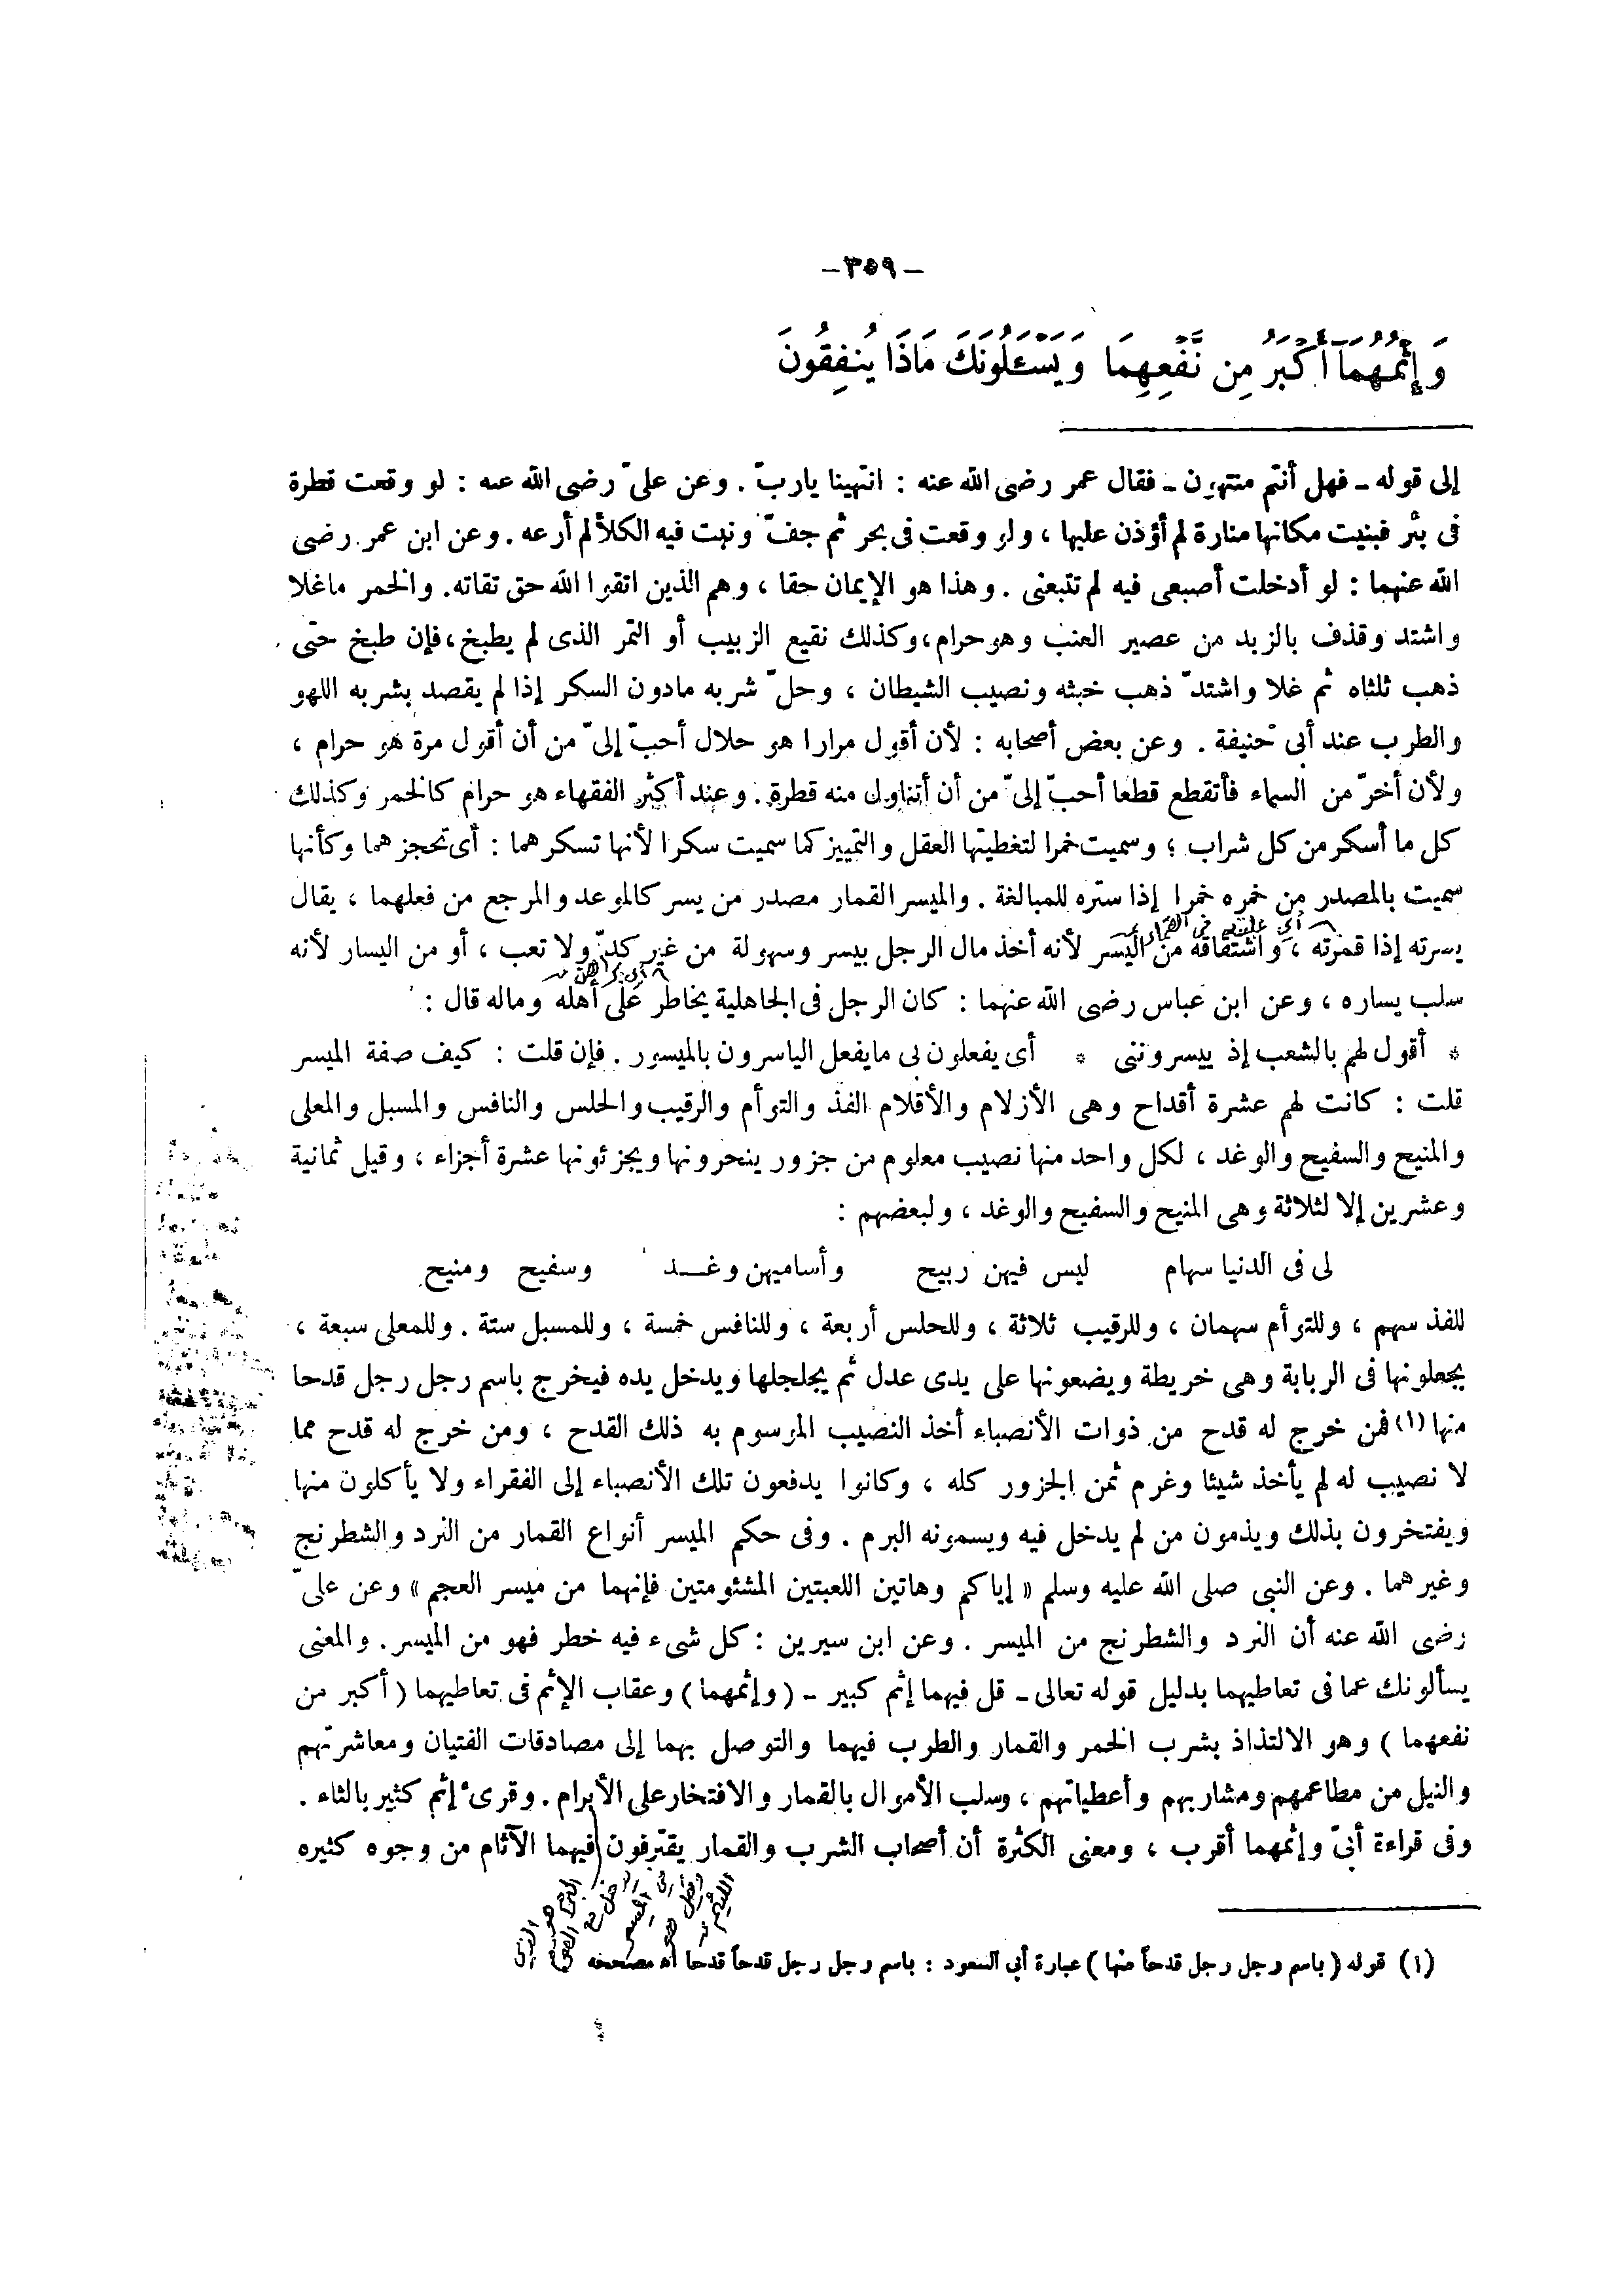 -٣٥٩-
وَإِثْمُهُمَآ أَكْبَرُ مِن نَّفْعِهِمَا وَيَسْـَٔلُونَكَ مَاذَا يُنفِقُونَ
إلى قوله ـ فهل أنتم منتهون ـ فقال عمر رضى الله عنه : انتهينا يارب . وعن علىّ رضى الله عنه : لو وقعت قطرة
فى بئر فبنيت مكانها منارة لم أؤذن عليها ، ولو وقعت فى بحر ثم جفّ ونبت فيه الكلأ لم أرعه . وعن ابن عمر رضى
الله عنهما : لو أدخلت أصبعى فيه لم تتبعنى . وهذا هو الإيمان حقا ، وهم الذين اتقوا الله حق تقاته. والخمر ماغلا
واشتد وقذف بالزبد من عصير العنب وهو حرام، وكذلك نقيع الزبيب أو التمر الذى لم يطبخ، فإن طبخ حتى
ذهب ثلثاه ثم غلا واشتدّ ذهب خبثه ونصيب الشيطان ، وحلّ شربه مادون السكر إذا لم يقصد بشربه اللهو
والطرب عند أبى حنيفة . وعن بعض أصحابه : لأن أقول مرارا هو حلال أحبّ إلىّ من أن أقول مرة هو حرام ،
ولأن أخرّ من السماء فأتقطع قطعا أحبّ إلىّ من أن أتناول منه قطرة. وعند أكثر الفقهاء هو حرام كالخمر وكذلك
كل ما أسكر من كل شراب ؛ وسميت خمرا لتغطيتها العقل والتمييز كما سميت سكرا لأنها تسكرهما : أى تحجزهما وكأنها
سميت بالمصدر من خمره خمرا إذا ستره للمبالغة . والميسر القمار مصدر من يسر كالموعد والمرجع من فعلهما ، يقال
يسرته إذا قمرته ، واشتقاقه من اليسر لأنه أخذ مال الرجل بيسر وسهولة من غير كدّ ولا تعب ، أو من اليسار لأنه
سلب يساره ، وعن ابن عباس رضى الله عنهما : كان الرجل فى الجاهلية يخاطر على أهله وماله قال :
* أقول لهم بالشعب إذ ييسروننى * أى يفعلون بى مايفعل الياسرون بالميسور . فإن قلت : كيف صفة الميسر
قلت : كانت لهم عشرة أقداح وهى الأزلام والأقلام الفذ والتوأم والرقيب والحلس والنافس والمسبل والمعلى
والمنيح والسفيح والوغد ، لكل واحد منها نصيب معلوم من جزور ينحرونها ويجزئونها عشرة أجزاء ، وقيل ثمانية
وعشرين إلا لثلاثة وهى المنيح والسفيح والوغد ، ولبعضهم :
لى فى الدنيا سهام ليس فيهن ربيح وأساميهن وغـد وسفيح ومنيح
للفذ سهم ، وللتوأم سهمان ، وللرقيب ثلاثة ، وللحلس أربعة ، وللنافس خمسة ، وللمسبل ستة . وللمعلى سبعة ،
يجعلونها فى الربابة وهى خريطة ويضعونها على يدى عدل ثم يجلجلها ويدخل يده فيخرج باسم رجل رجل قدحا
منها (١) فمن خرج له قدح من ذوات الأنصباء أخذ النصيب الموسوم به ذلك القدح ، ومن خرج له قدح مما
لا نصيب له لم يأخذ شيئا وغرم ثمن الجزور كله ، وكانوا يدفعون تلك الأنصباء إلى الفقراء ولا يأكلون منها
ويفتخرون بذلك ويذمون من لم يدخل فيه ويسمونه البرم . وفى حكم الميسر أنواع القمار من النرد والشطرنج
وغيرهما . وعن النبى صلى الله عليه وسلم « إياكم وهاتين اللعبتين المشئومتين فإنهما من ميسر العجم » وعن علىّ
رضى الله عنه أن النرد والشطرنج من الميسر . وعن ابن سيرين : كل شىء فيه خطر فهو من الميسر. والمعنى
يسألونك عما فى تعاطيهما بدليل قوله تعالى ـ قل فيهما إثم كبير ـ (وإثمهما) وعقاب الإثم فى تعاطيهما (أكبر من
نفعهما ) وهو الالتذاذ بشرب الخمر والقمار والطرب فيهما والتوصل بهما إلى مصادقات الفتيان ومعاشرتهم
والنيل من مطاعمهم ومشاربهم وأعطياتهم ، وسلب الأموال بالقمار والافتخار على الأبرام . وقرىء إثم كثير بالثاء .
وفى قراءة أبىّ وإثمهما أقرب ، ومعنى الكثرة أن أصحاب الشرب والقمار يقترفون فيهما الآثام من وجوه كثيره
(١) قوله ( باسم رجل رجل قدحاً منها ) عبارة أبى السعود : باسم رجل رجل قدحاً قدحا اه مصححه